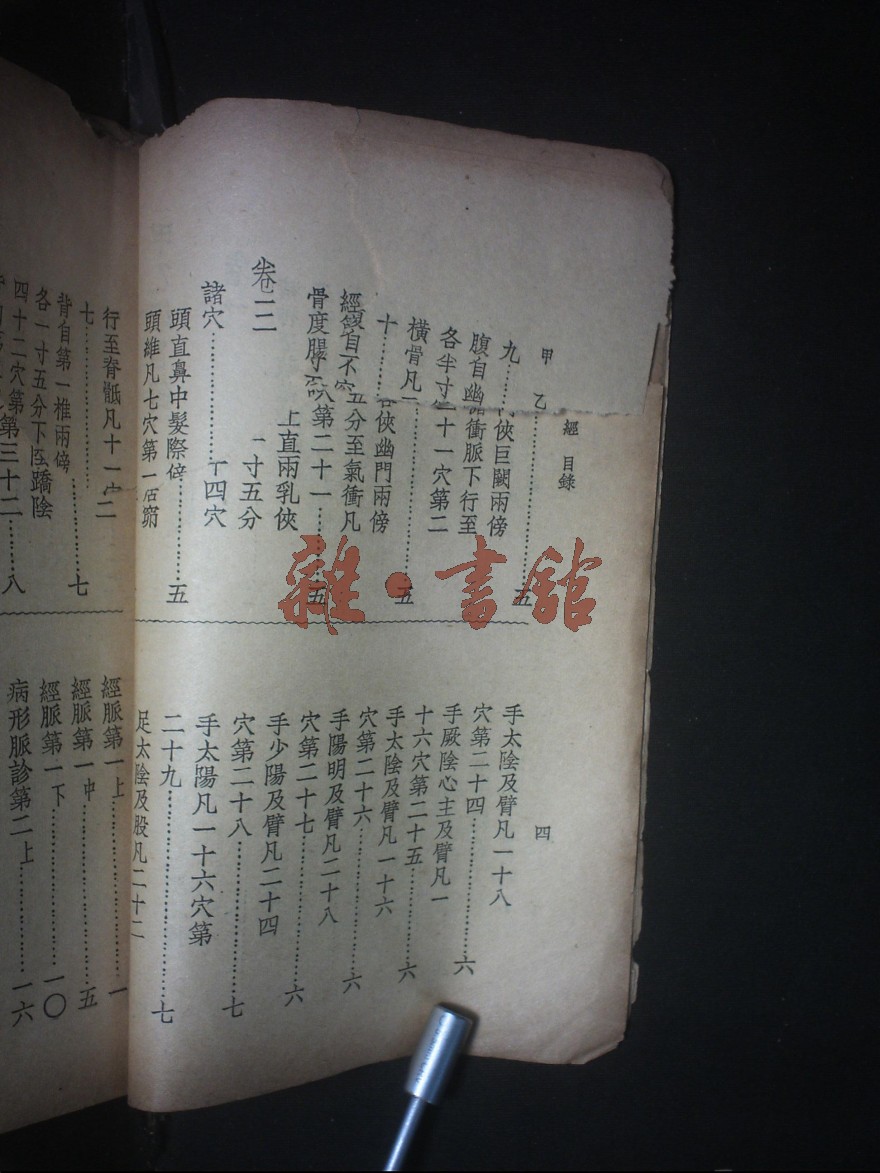 甲乙
經目錄
四
九
俠巨闕兩傍
腹自幽
衝脈下行至
各半寸
十一穴第二
橫骨凡
五
十
俠幽門兩傍
五分至氣衝凡
骨度腸
第二十一
五
卷三
上直兩乳俠
一寸五分
諸穴
十四穴
頭直鼻中髮際傍
五
頭維凡七穴第一
手太陰及臂凡一十八
穴第二十四……六
手厥陰心主及臂凡一
十六穴第二十五……六
手太陰及臂凡一十六
穴第二十六……六
手陽明及臂凡二十八
穴第二十七……六
手少陽及臂凡二十四
穴第二十八……七
手太陽凡一十六穴第
二十九……七
足太陰及股凡二十二
行至脊骶凡十一
七……七
背自第一椎兩傍
各一寸五分下
蹻陰
四十二穴第
第三十二……八
經脈第一上……一
經脈第一中……五
經脈第一下……一〇
病形脈診第二上……一六
雜·書館